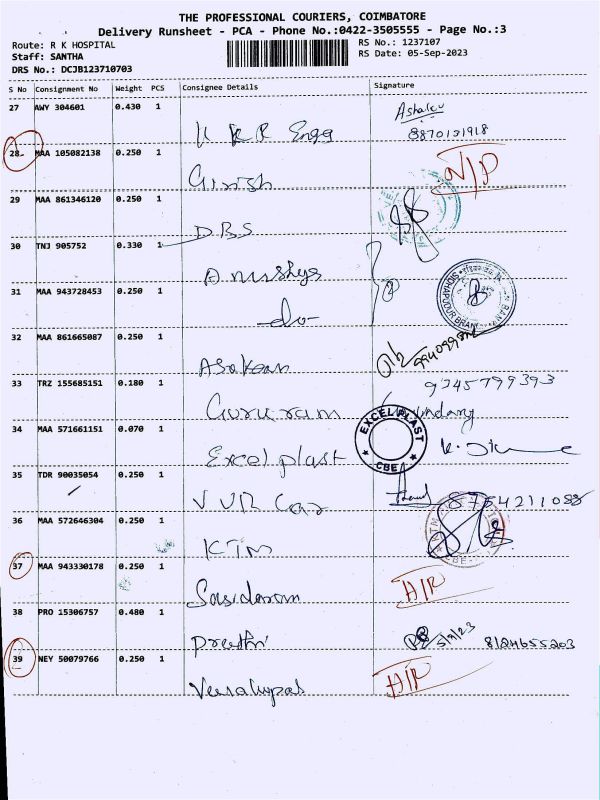 THE PROFESSIONAL COURIERS, COIMBATORE
Delivery Runsheet - PCA - Phone No.:0422-3505555 - Page No.:3
Route: R K HOSPITAL
Staff: SANTHA
DRS No.: DCJB123710703
RS No.: 1237107
RS Date: 05-Sep-2023
S No Consignment No Weight PCS Consignee Details Signature
27 AWY 304601 0.430 1
Engg
8870131918
28 MAA 105082138 0.250 1
Girish
29 MAA 861346120 0.250 1
D.B.S
30 TNJ 905752 0.330 1
Anushya
31 MAA 943728453 0.250 1
-do-
32 MAA 861665087 0.250 1
Asokan
33 TRZ 155685151 0.180 1
9345799393
Gururam
34 MAA 571661151 0.070 1
Excel plast
EXCEL PLAST
CBE
35 TDR 90035054 0.250 1
V V R Car
8754211088
36 MAA 572646304 0.250 1
KTM
37 MAA 943330178 0.250 1
38 PRO 15306757 0.480 1
Preethi
5/9/23
8124655203
39 NEY 50079766 0.250 1